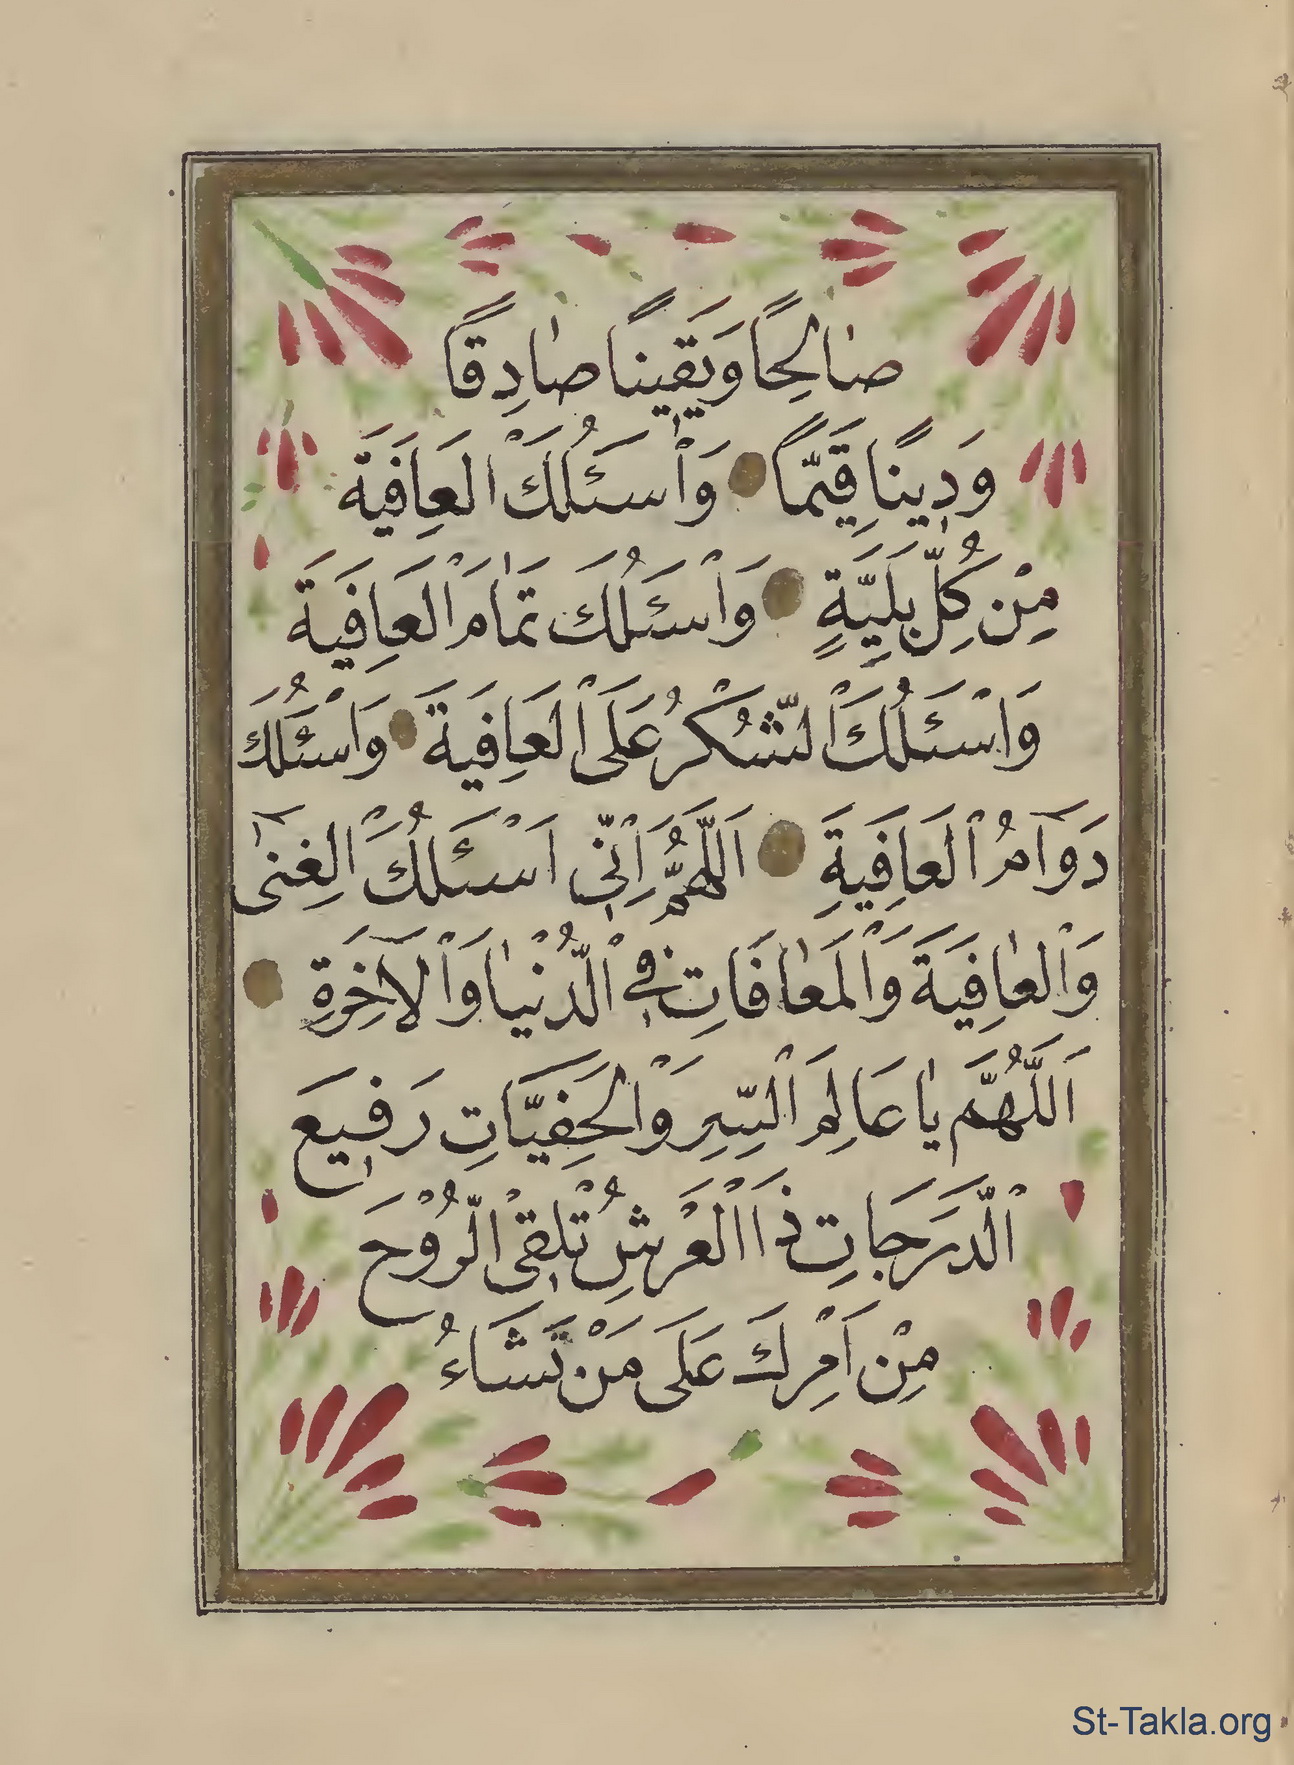 صَالِحًا وَيَقِينًا صَادِقًا
وَدِينًا قَيِّمًا وَاَسْئَلُكَ الْعَافِيَةَ
مِنْ كُلِّ بَلِيَّةٍ وَاَسْئَلُكَ تَمَامَ الْعَافِيَةَ
وَاَسْئَلُكَ الشُّكْرُ عَلَى الْعَافِيَةَ وَاَسْئَلُكَ
دَوَآمُ الْعَافِيَةِ اَللّٰهُمَّ اِنِّى اَسْئَلُكَ الْغِنٰى
وَالْعَافِيَةَ وَالْمَعَافَاتِ فِى الدُّنْيَا وَالْآخِرَةِ
اَللّٰهُمَّ يَا عَالِمَ السِّرِ وَالْخَفِيَّاتِ رَفِيعَ
الدَّرَجَاتِ ذَا الْعَرْشِ تُلْقِى الرُّوْحَ
مِنْ اَمْرِكَ عَلَى مَنْ تَشَاءُ
St-Takla.org